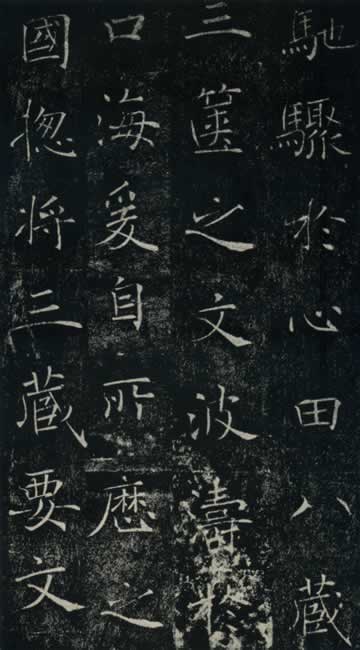 馳驟於心田八藏
三篋之文波濤於
口海爰自所歷之
國揔将三藏要文